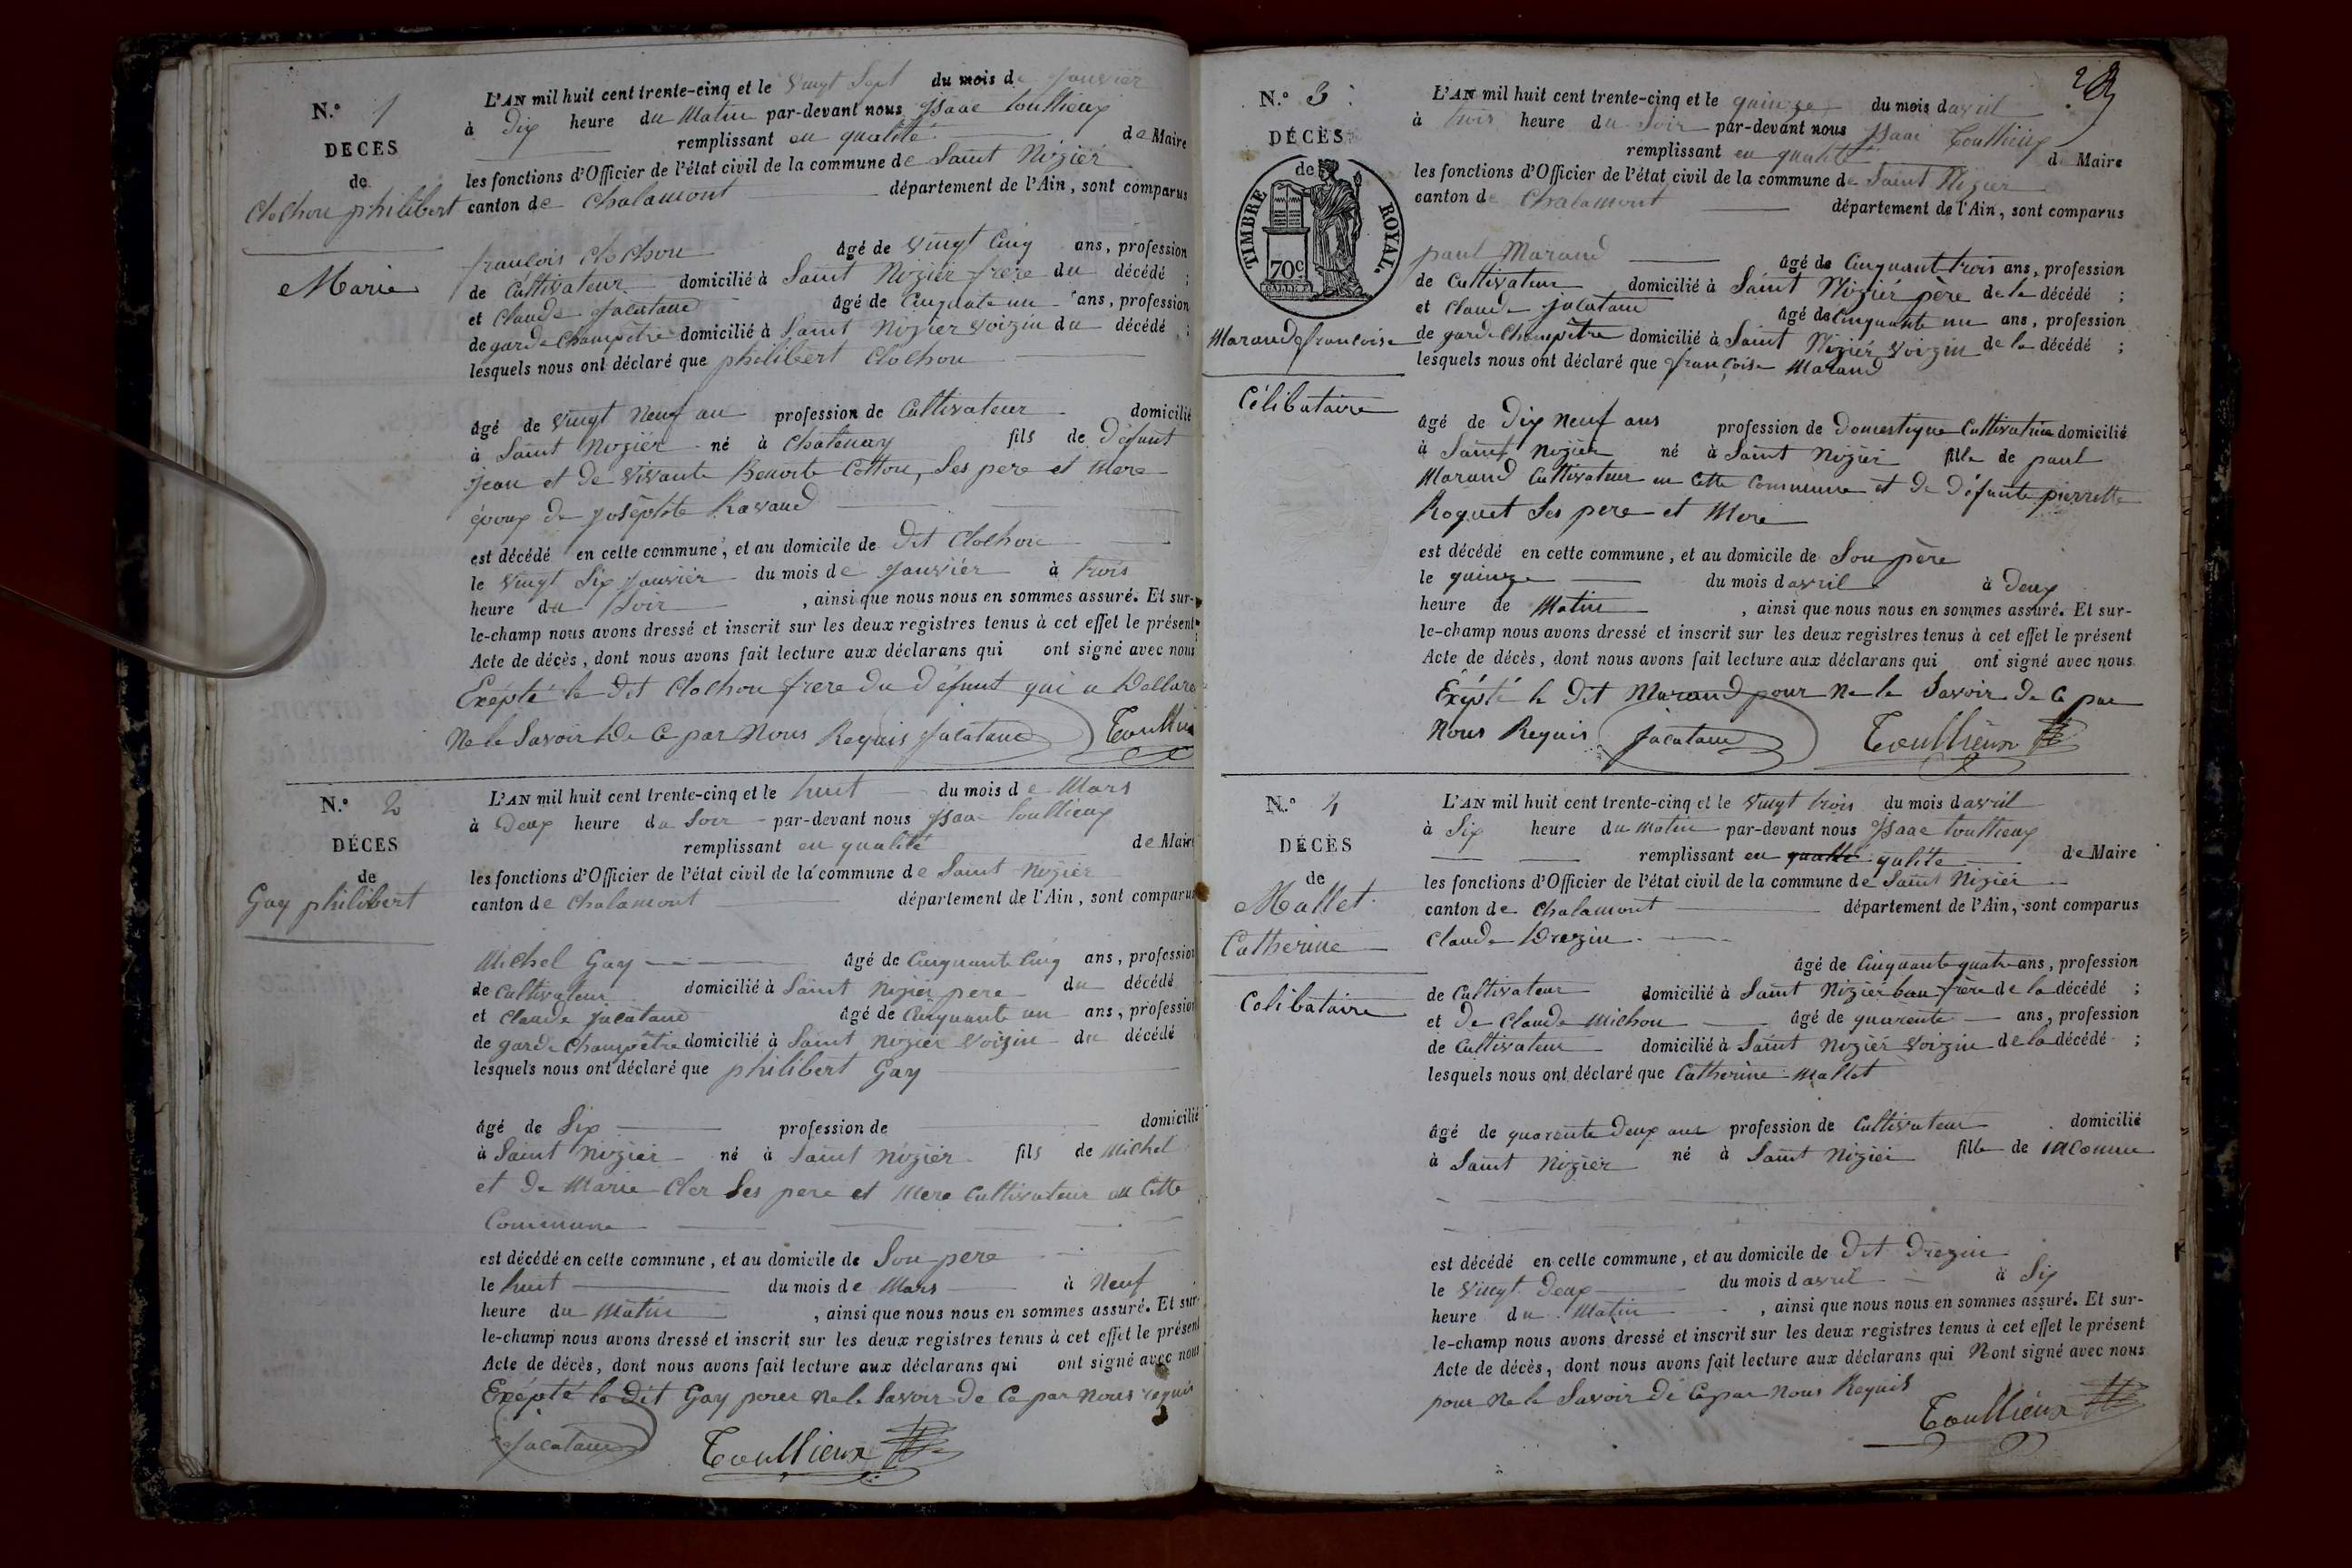 N.° 1
DÉCÈS
de
Clochon philibert
Marié
L'AN mil huit cent trente-cinq et le vingt Sept du mois de Janvier
à Dix heure du Matin par-devant nous Isaac toullieux
remplissant en qualité de Maire
les fonctions d'Officier de l'état civil de la commune de Saint Nizier
canton de Chalamont département de l'Ain, sont comparus
françois Clochon âgé de vingt Cinq ans, profession
de Cultivateur domicilié à Saint Nizier frere du décédé ;
et Claude Jacataud âgé de Cinquante un ans, profession
de garde Champêtre domicilié à Saint Nizier voizin du décédé ;
lesquels nous ont déclaré que philibert Clochon
âgé de vingt Neuf an profession de Cultivateur domicilié
à Saint Nizier né à Chatenay fils de Défunt
jean et de vivante Benoite Cottou, Ses pere et Mere
époux de Joséphte Ravaud
est décédé en cette commune, et au domicile de Dit Clochon
le vingt Six Janvier du mois de Janvier à trois
heure du Soir , ainsi que nous nous en sommes assuré. Et sur-
le-champ nous avons dressé et inscrit sur les deux registres tenus à cet effet le présent
Acte de décès, dont nous avons fait lecture aux déclarans qui ont signé avec nous
Exépté le Dit Clochon frere du Défunt qui a Dellaré
Ne le Savoir De Ce par Nous Requis Jacataud Toullieux
N.° 2
DÉCES
de
Gay philibert
L'AN mil huit cent trente-cinq et le huit du mois de Mars
à Deux heure du Soir par-devant nous Isaac toullieux
remplissant en qualité de Maire
les fonctions d'Officier de l'état civil de la commune de Saint Nizier
canton de Chalamont département de l'Ain, sont comparus
Michel Gay âgé de Cinquante Cinq ans, profession
de Cultivateur domicilié à Saint Nizier pere du décédé
et Claude Jacataud âgé de Cinquante un ans, profession
de garde Champêtre domicilié à Saint Nizier Voizin du décédé
lesquels nous ont déclaré que philibert Gay
âgé de Six profession de domicilié
à Saint Nizier né à Saint Nizier fils de Michel
et de Marie Cler Ses pere et Mere Cultivateur en Cette
Commune
est décédé en cette commune, et au domicile de Son pere
le huit du mois de Mars à Neuf
heure du Matin , ainsi que nous nous en sommes assuré. Et sur
le-champ nous avons dressé et inscrit sur les deux registres tenus à cet effet le présent
Acte de décès, dont nous avons fait lecture aux déclarans qui ont signé avec nous
Exépté le Dit Gay pour Ne le Savoir De Ce par Nous requis
Jacataud Toullieux
2
N.° 3
DÉCÈS
de
TIMBRE ROYAL.
70c
Marand françoise
Célibataire
L'AN mil huit cent trente-cinq et le quinze du mois d avril
à trois heure du Soir par-devant nous Isaac Toullieux
remplissant en qualité d Maire
les fonctions d'Officier de l'état civil de la commune de Saint Nizier
canton de Chalamont département de l'Ain, sont comparus
paul Marand âgé de Cinquant trois ans, profession
de Cultivateur domicilié à Saint Nizier père de la décédé ;
et Claude Jacataud âgé de Cinquante un ans, profession
de garde Champêtre domicilié à Saint Nizier Voizin de la décédé ;
lesquels nous ont déclaré que françoise Marand
âgé de Dix Neuf ans profession de Domestique Cultivatrice domicilié
à Saint Nizier né à Saint Nizier fille de paul
Marand Cultivateur en Cette Commune et De Défunte pierrette
Roquet Ses pere et Mere
est décédé en cette commune, et au domicile de Son père
le quinze du mois d avril à Deux
heure de Matin , ainsi que nous nous en sommes assuré. Et sur-
le-champ nous avons dressé et inscrit sur les deux registres tenus à cet effet le présent
Acte de décès, dont nous avons fait lecture aux déclarans qui ont signé avec nous
Exépté le Dit Marand pour Ne le Savoir De Ce par
Nous Requis Jacataud Toullieux
N.° 4
DÉCÈS
de
Mallet
Catherine
Celibataire
L'AN mil huit cent trente-cinq et le vingt trois du mois d avril
à Six heure du Matin par-devant nous Isaac toullieux
remplissant en qualité de Maire
les fonctions d'Officier de l'état civil de la commune de Saint Nizier
canton de Chalamont département de l'Ain, sont comparus
Claude Drezin
âgé de Cinquante quatre ans, profession
de Cultivateur domicilié à Saint Nizier bau frere de la décédé ;
et De Claude Michon âgé de quarente ans, profession
de Cultivateur domicilié à Saint Nizier voizin de la décédé ;
lesquels nous ont déclaré que Catherine Mallet
âgé de quarente Deux ans profession de Cultivateur domicilié
à Saint Nizier né à Saint Nizier fille de inconnu
est décédé en cette commune, et au domicile de Dit Drezin
le vingt Deux du mois d avril à Six
heure du Matin , ainsi que nous nous en sommes assuré. Et sur-
le-champ nous avons dressé et inscrit sur les deux registres tenus à cet effet le présent
Acte de décès, dont nous avons fait lecture aux déclarans qui Nont signé avec nous
pour Ne le Savoir De Ce par Nous Requis
Toullieux